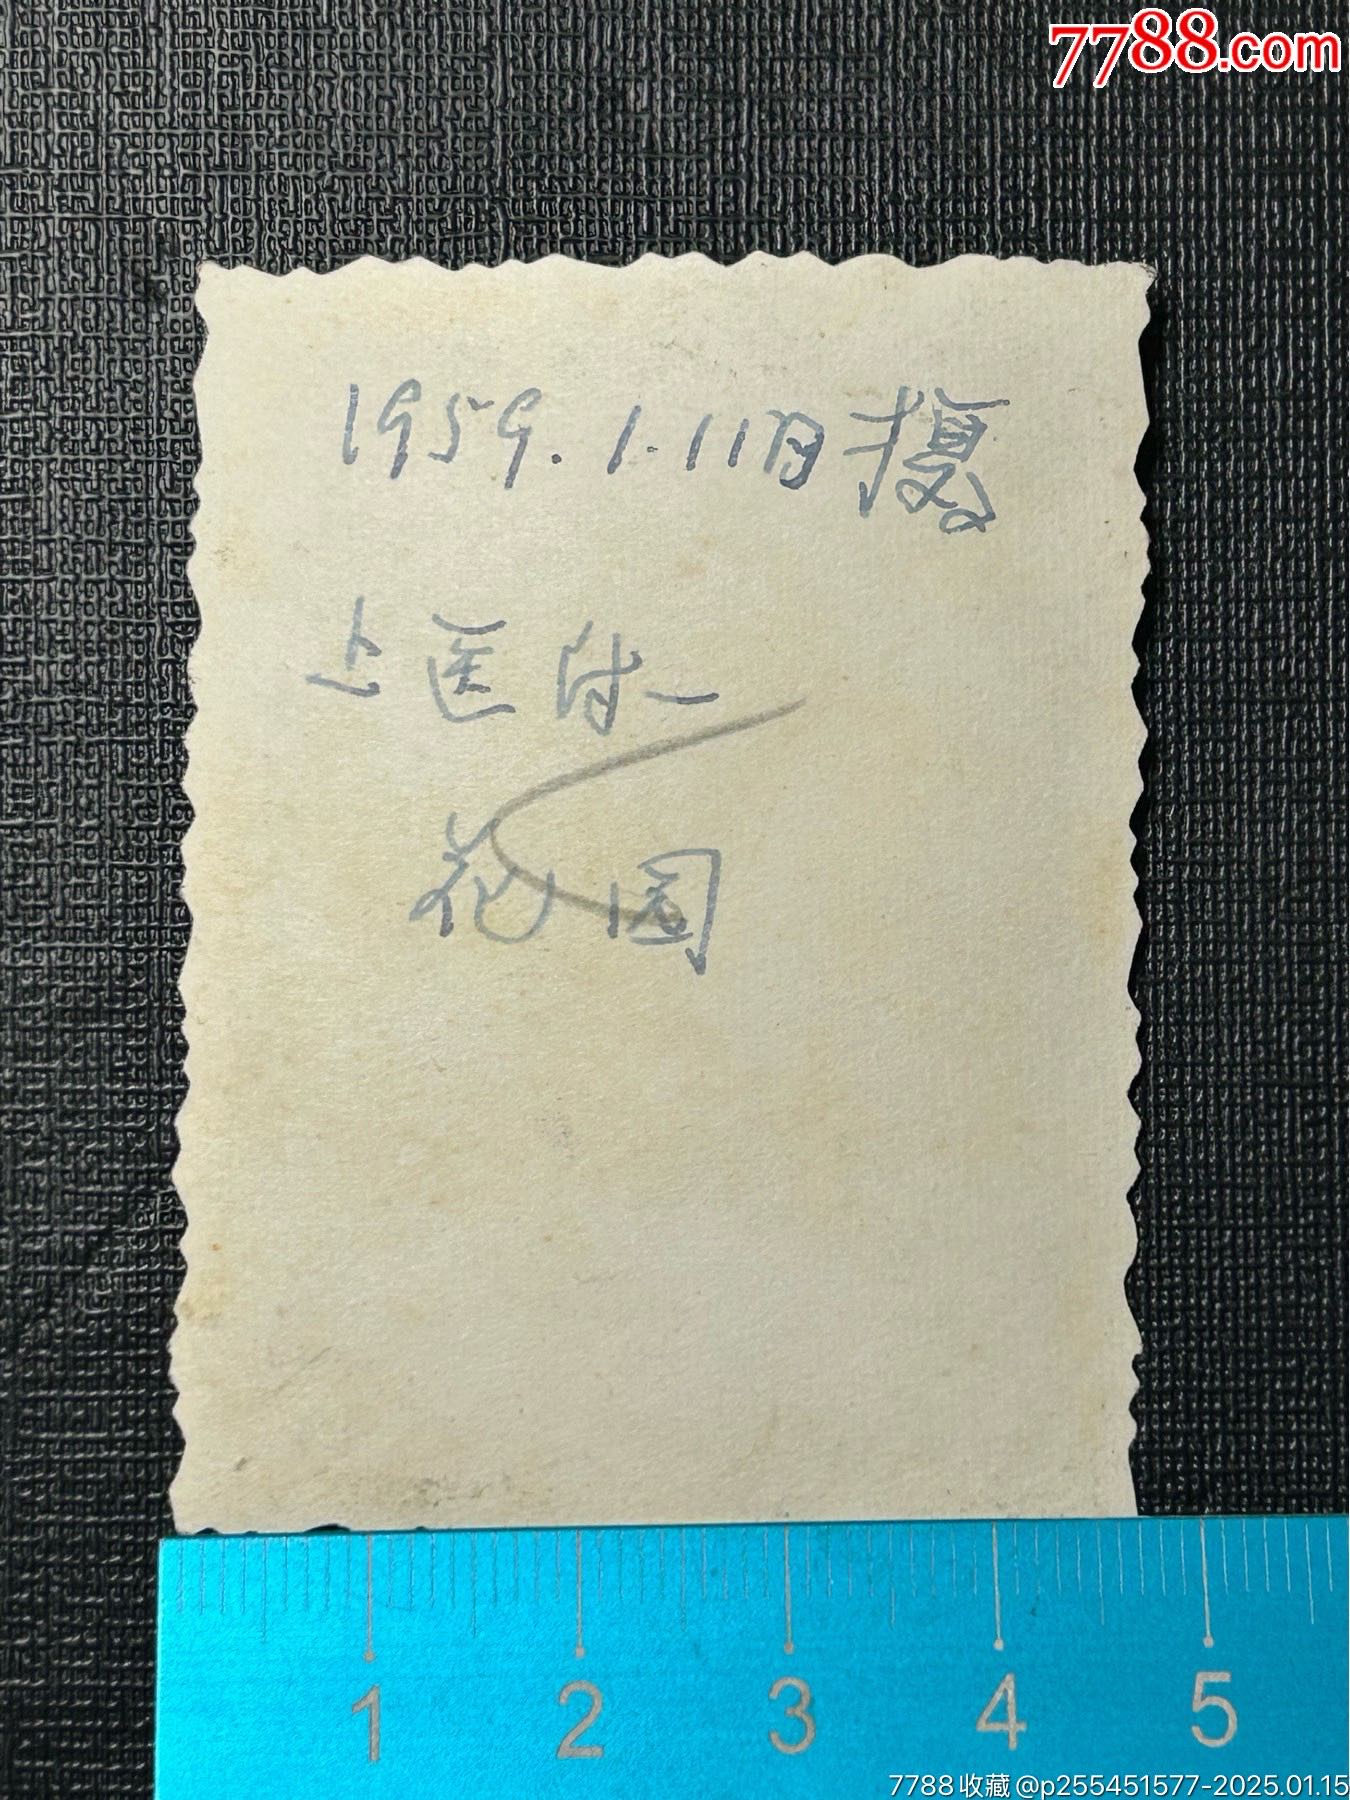 7788.com
1959.1.11日摄
上医附一
花园
1 2 3 4 5
7788收藏@p255451577-2025.01.15